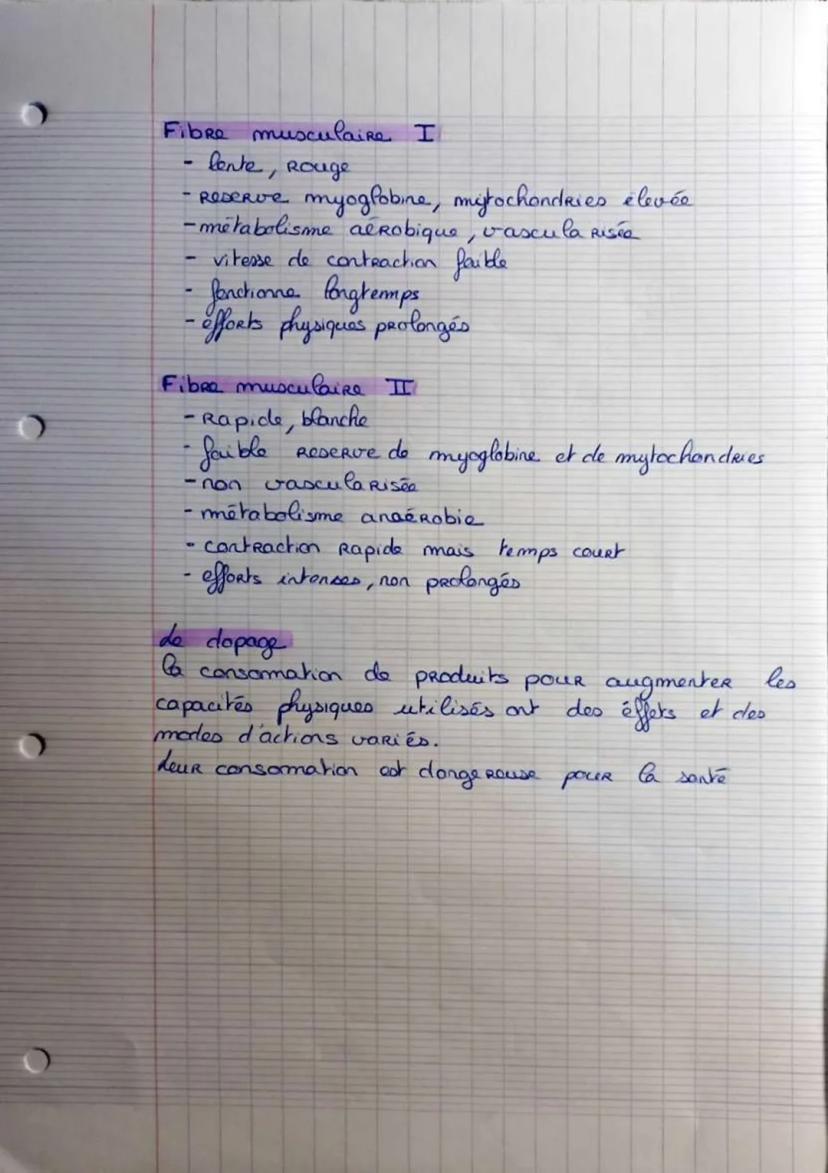 Fibre musculaire I
- lente, rouge
- reserve myoglobine, mytochondries élevée
- métabolisme aérobique, vascularisée
- vitesse de contraction faible
- fonctionne longtemps
- efforts physiques prolongés
Fibre musculaire II
- Rapide, blanche
- faible reserve de myoglobine et de mytochondries
- non vascularisée
- métabolisme anaérobie
- contraction rapide mais temps court
- efforts intenses, non prolongés
Le dopage
la consommation de produits pour augmenter les
capacités physiques utilisés ont des éffets et des
modes d'actions variés.
Leur consommation est dangereuse pour la santé